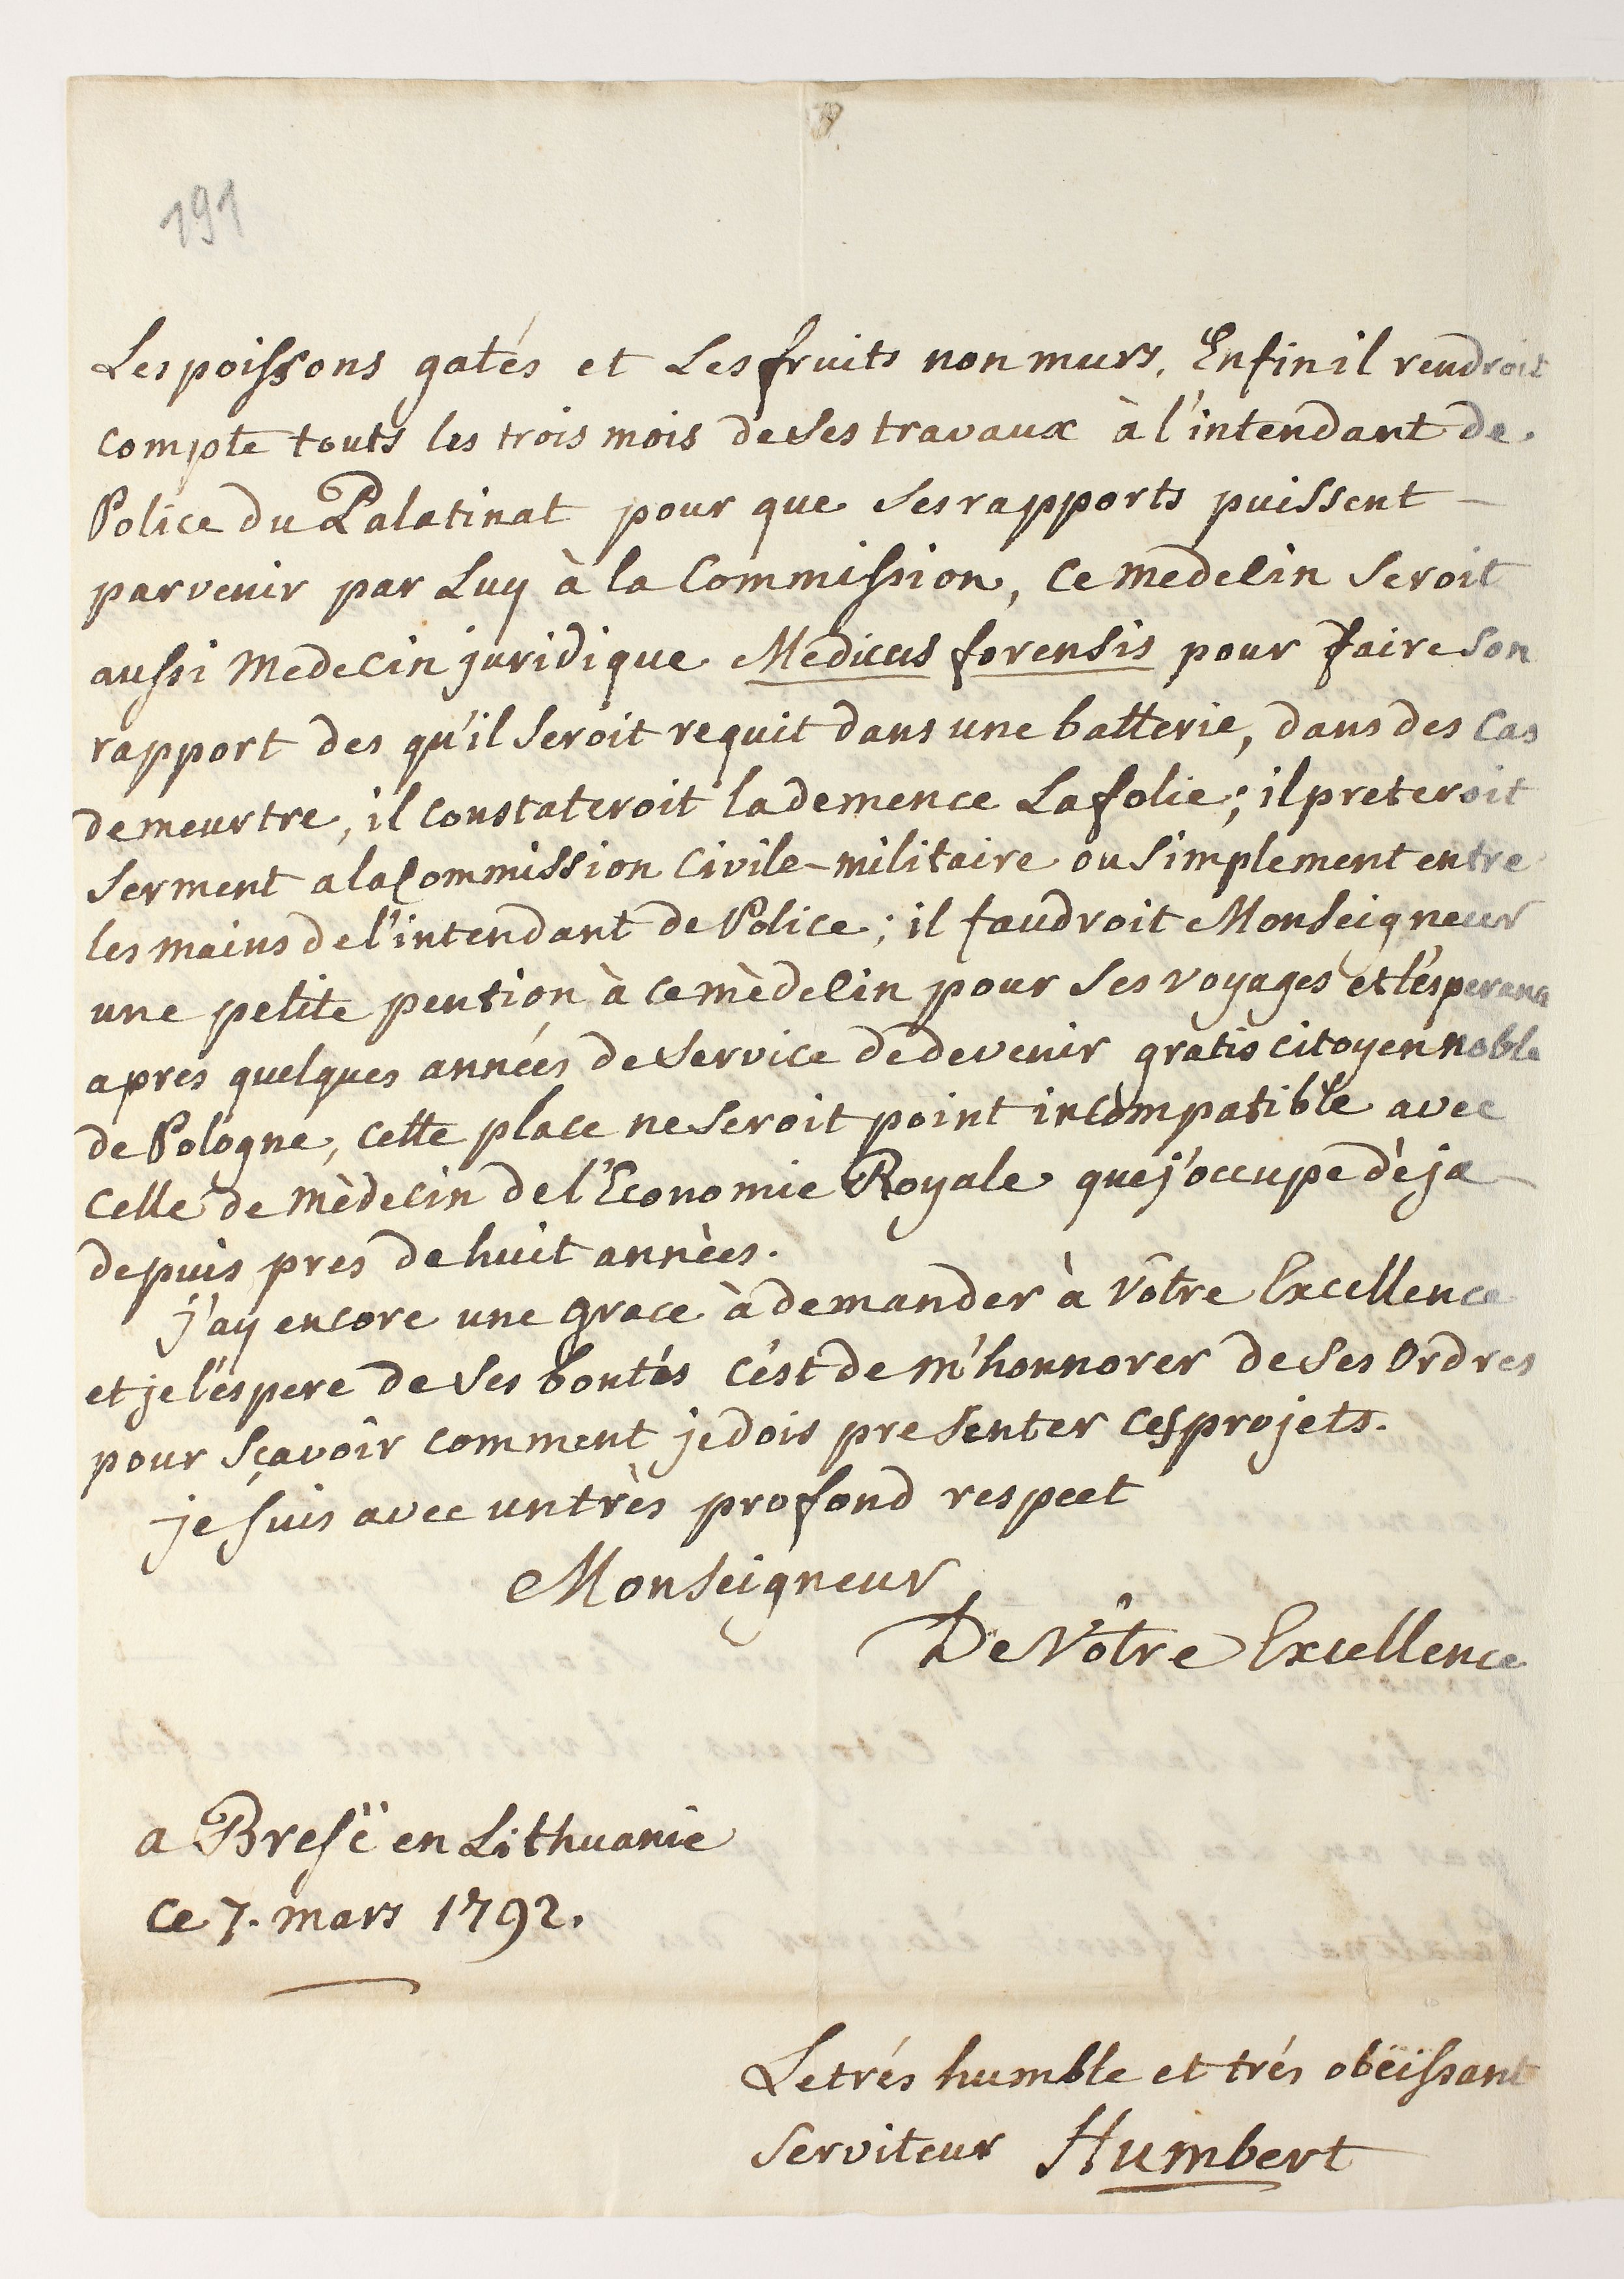 191
Les poissons gatés et Les fruits non murs. Enfin il rendroit
compte touts les trois mois de ses travaux à l'intendant de
Police du Palatinat pour que ses rapports puissent —
parvenir par Luy à la Commission, ce medecin seroit
aussi medecin juridique Medicus forensis pour faire son
rapport des qu'il seroit requit dans une batterie, dans des cas
de meurtre, il constateroit la demence La folie; il preteroit
serment a la Commission civile-militaire ou simplement entre
les mains de l'intendant de Police; il faudroit Monseigneur
une petite pention à ce mèdecin pour ses voyages et l'esperance
apres quelques années de service de devenir gratis citoyen noble
de Pologne, cette place ne seroit point incompatible avec
celle de mèdecin de l'Economie Royale que j'occupe dèja —
depuis pres de huit années.
j'ay encore une grace à demander à Vôtre Excellence
et je l'espere de ses bontés c'est de m'honnorer de ses ordres
pour sçavoir comment je dois presenter ces projets.
je suis avec un très profond respect
Monseigneur
De Vôtre Excellence
a Bresc en Lithuanie
ce 7. mars 1792.
Le trés humble et trés obëissant
serviteur Humbert